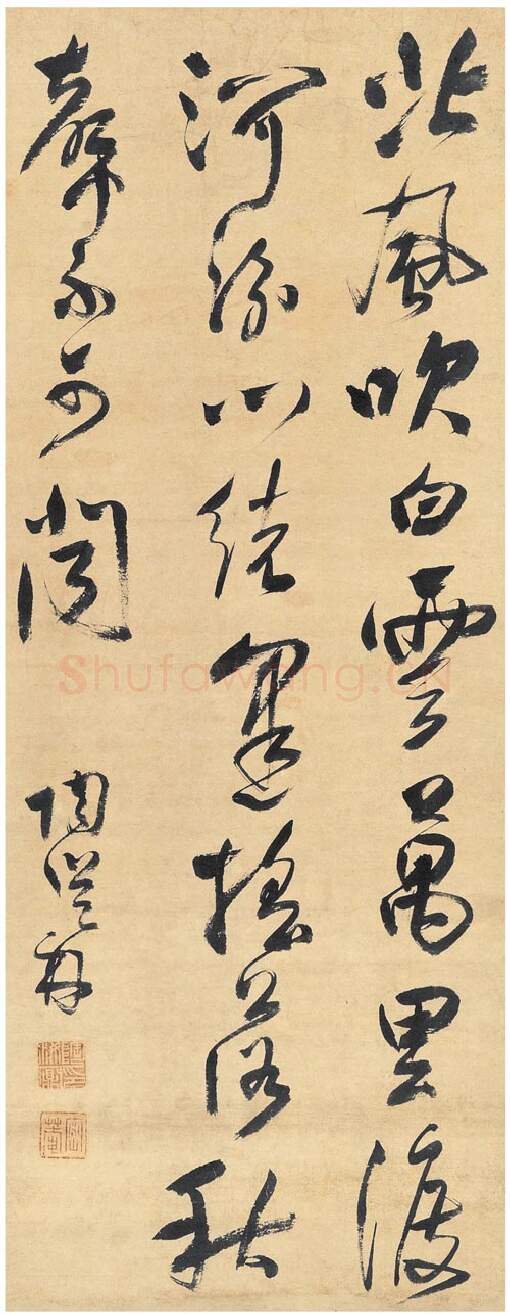 北風吹白雲萬里渡
河汾心緒逢搖落秋
聲不可聞
陶
Shufawang.CN